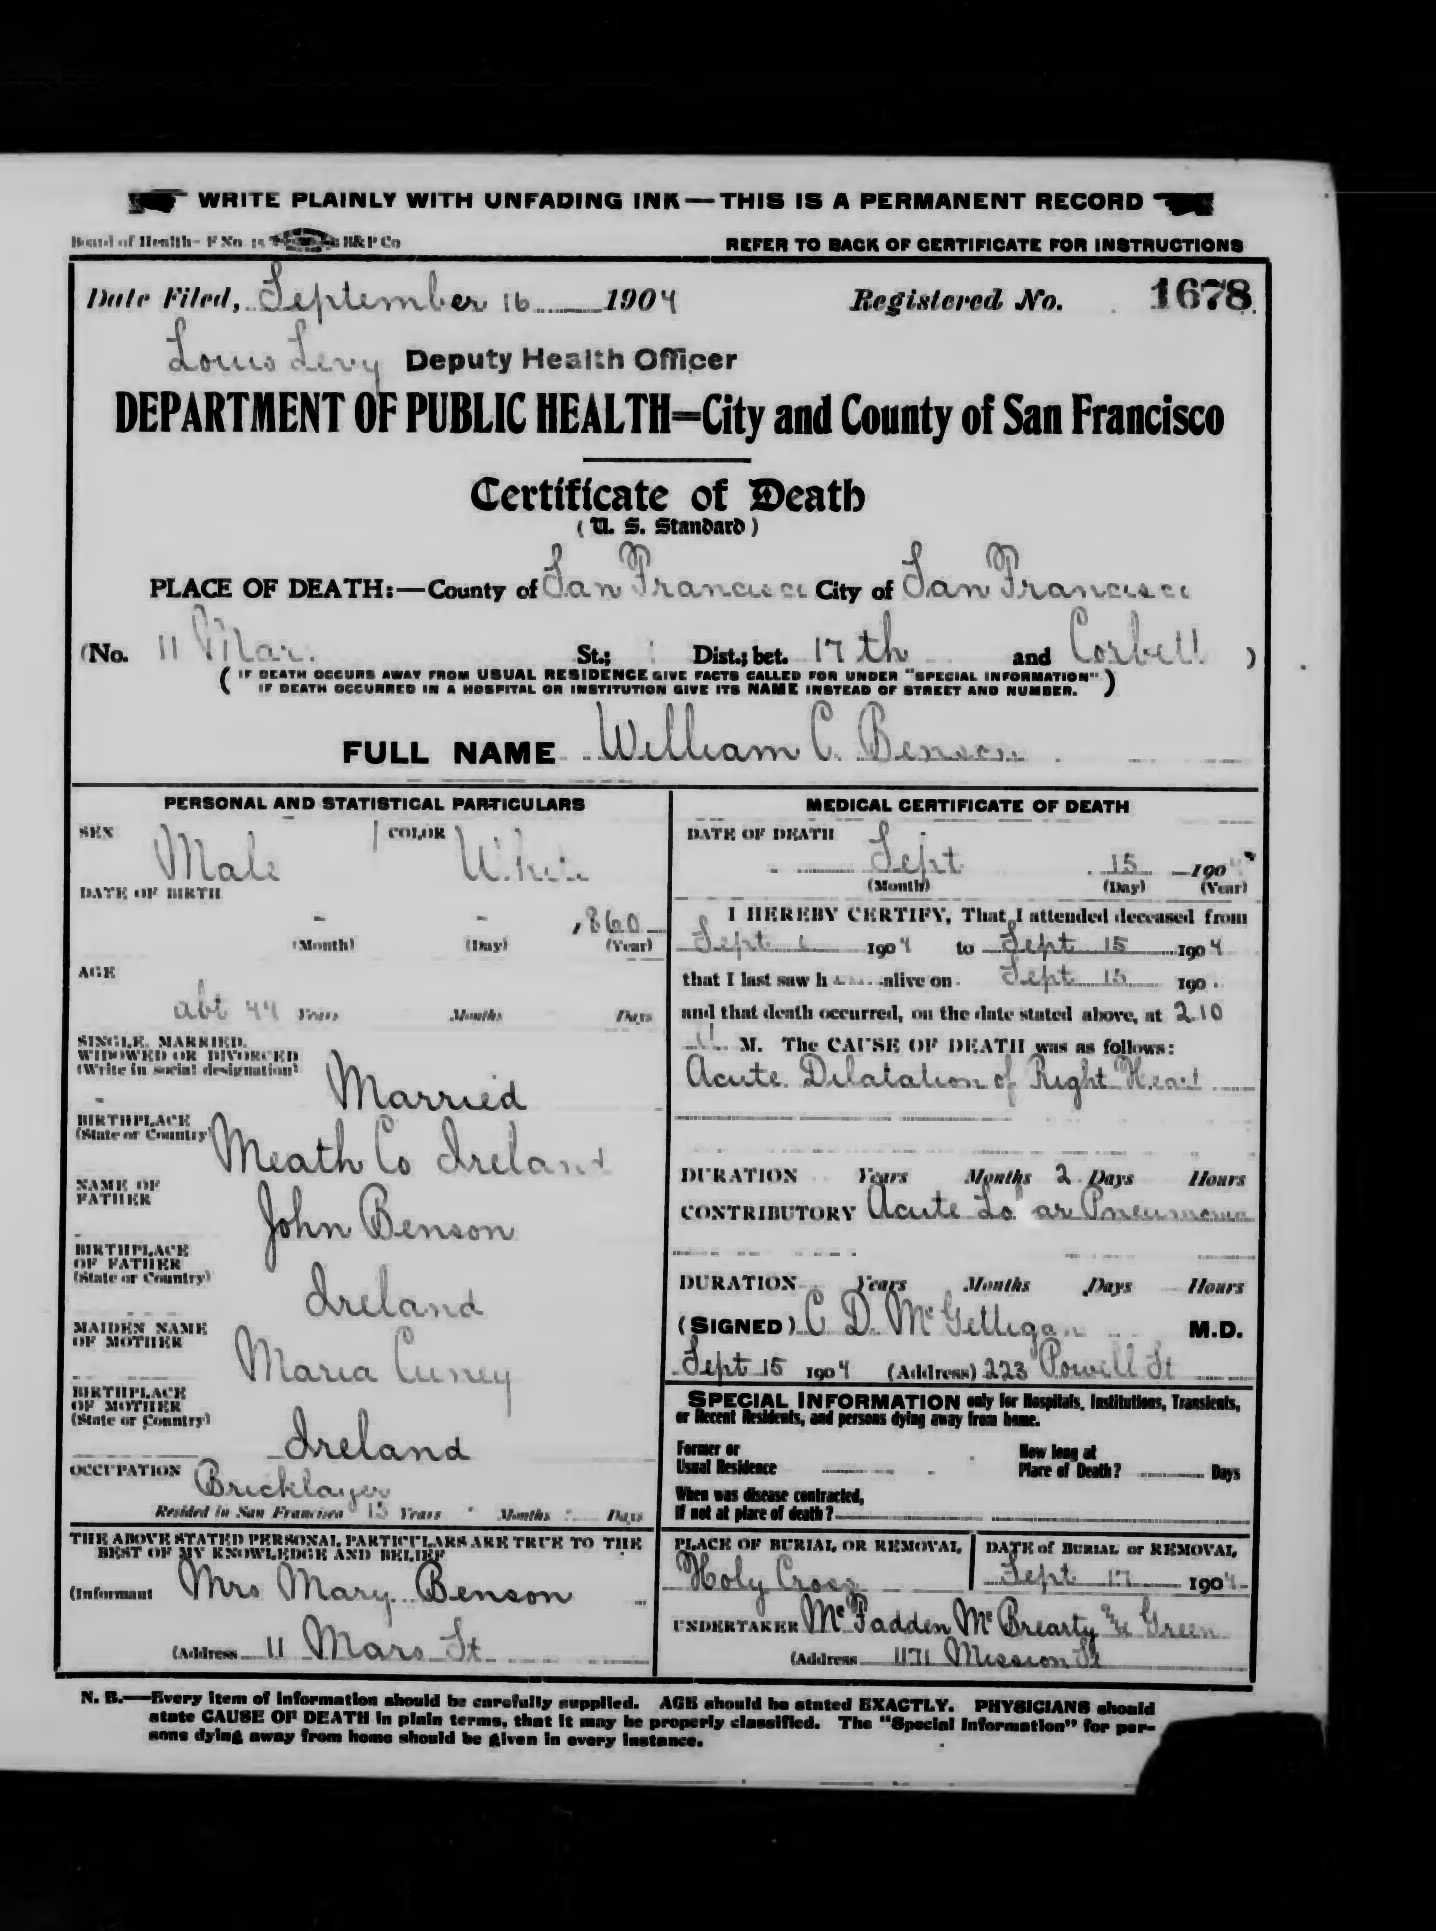 WRITE PLAINLY WITH UNFADING INK—THIS IS A PERMANENT RECORD
Board of Health—F No. 15 H&P Co
REFER TO BACK OF CERTIFICATE FOR INSTRUCTIONS
Date Filed, September 16 1904 Registered No. 1678
Louis Levy Deputy Health Officer
DEPARTMENT OF PUBLIC HEALTH=City and County of San Francisco
Certificate of Death
(U. S. Standard)
PLACE OF DEATH:—County of San Francisco City of San Francisco
(No. 11 Mars St.; Dist.; bet. 17th and Corbett )
( IF DEATH OCCURS AWAY FROM USUAL RESIDENCE GIVE FACTS CALLED FOR UNDER "SPECIAL INFORMATION"
IF DEATH OCCURRED IN A HOSPITAL OR INSTITUTION GIVE ITS NAME INSTEAD OF STREET AND NUMBER. )
FULL NAME William C. Benson
PERSONAL AND STATISTICAL PARTICULARS
SEX Male COLOR White
DATE OF BIRTH
- - 1860
(Month) (Day) (Year)
AGE
abt 44 Years Months Days
SINGLE, MARRIED,
WIDOWED OR DIVORCED
(Write in social designation)
Married
BIRTHPLACE
(State or Country)
Meath Co Ireland
NAME OF
FATHER
John Benson
BIRTHPLACE
OF FATHER
(State or Country)
Ireland
MAIDEN NAME
OF MOTHER
Maria Cuney
BIRTHPLACE
OF MOTHER
(State or Country)
Ireland
OCCUPATION Bricklayer
Resided in San Francisco 15 Years Months Days
THE ABOVE STATED PERSONAL PARTICULARS ARE TRUE TO THE
BEST OF MY KNOWLEDGE AND BELIEF
(Informant Mrs Mary Benson
(Address 11 Mars St
MEDICAL CERTIFICATE OF DEATH
DATE OF DEATH
Sept 15 1904
(Month) (Day) (Year)
I HEREBY CERTIFY, That I attended deceased from
Sept 1904 to Sept 15 1904
that I last saw h alive on Sept 15 190
and that death occurred, on the date stated above, at 2.10
M. The CAUSE OF DEATH was as follows:
Acute Dilatation of Right Heart
DURATION Years Months 2 Days Hours
CONTRIBUTORY Acute Lobar Pneumonia
DURATION Years Months Days Hours
(SIGNED) C D. McGettigan M.D.
Sept 15 1904 (Address) 223 Powell St
SPECIAL INFORMATION only for Hospitals, Institutions, Transients,
or Recent Residents, and persons dying away from home.
Former or
Usual Residence
How long at
Place of Death? Days
When was disease contracted,
If not at place of death?
PLACE OF BURIAL OR REMOVAL
Holy Cross
DATE of BURIAL or REMOVAL
Sept 17 1904
UNDERTAKER McFadden McBrearty & Green
(Address 1171 Mission St
N. B.—Every item of information should be carefully supplied. AGE should be stated EXACTLY. PHYSICIANS should
state CAUSE OF DEATH in plain terms, that it may be properly classified. The "Special Information" for per-
sons dying away from home should be given in every instance.